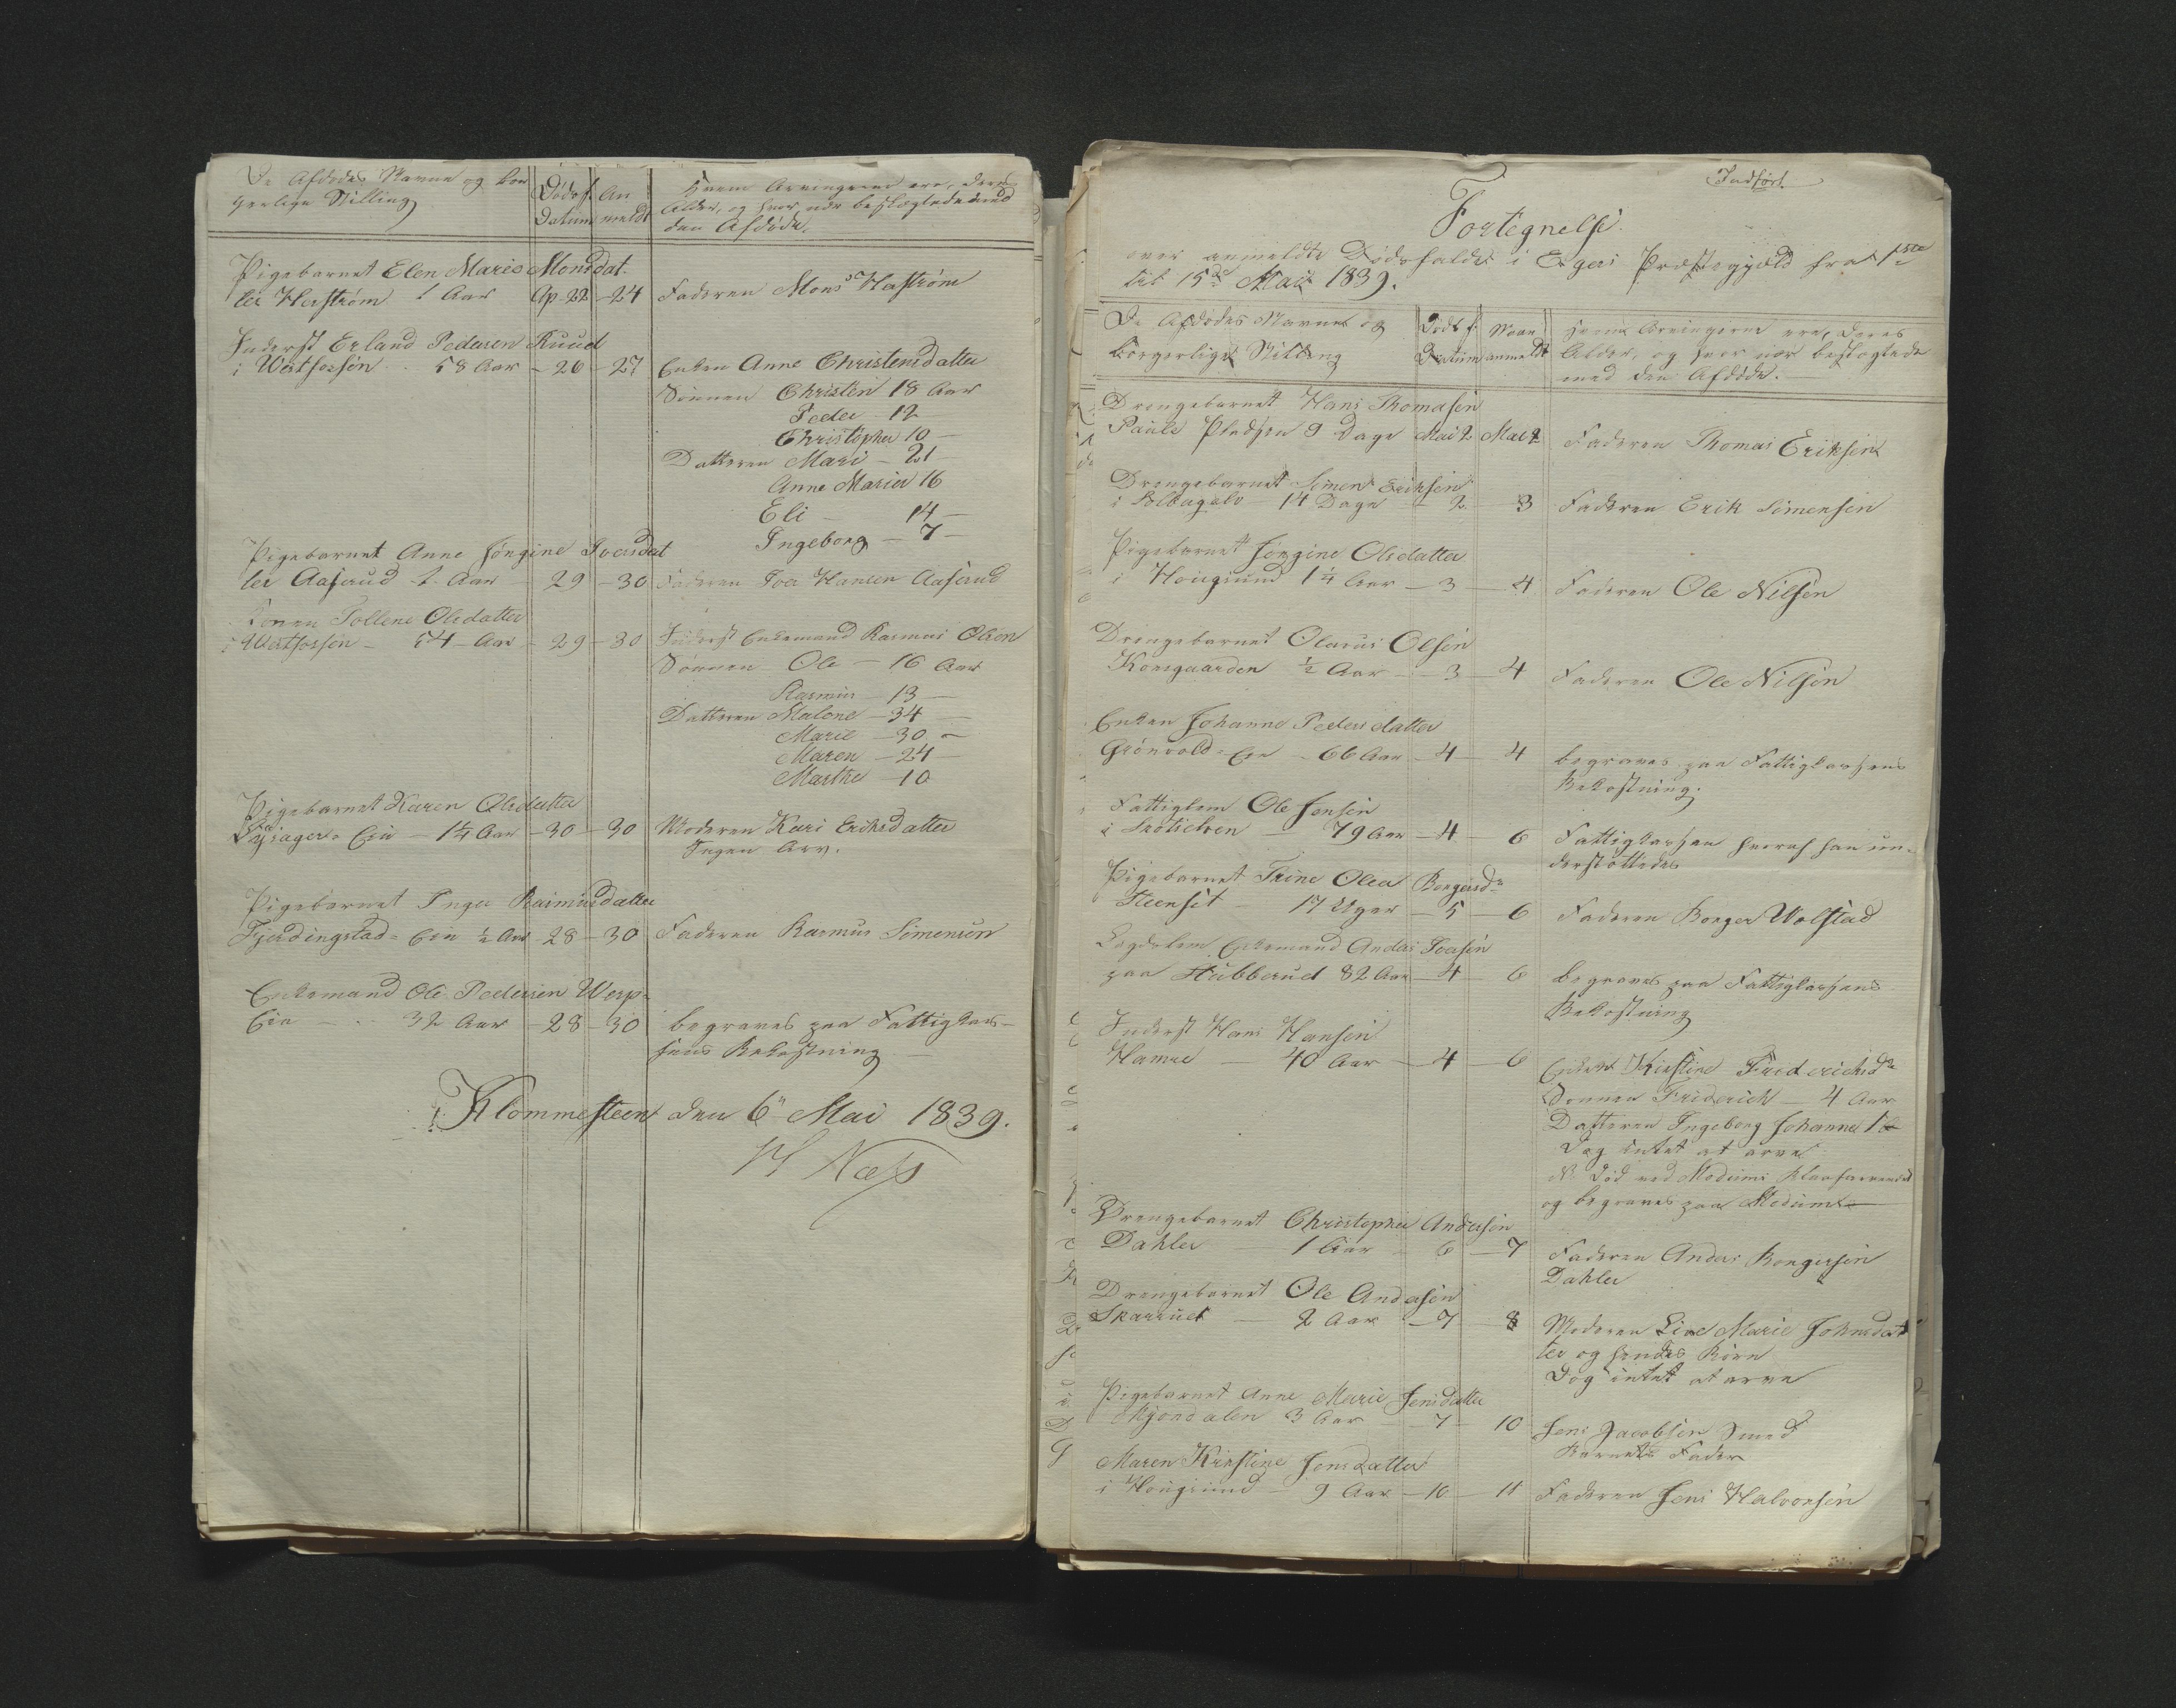 De Afdødes Navne og bor
gerlige Stilling
Dødsf.
Datum
An
meldt
Hvem Arvingerne ere, deres
Alder, og hvor nær beslægtede med
den Afdøde.
Pigebarnet Elen Marie Monsdat
ter Hæstrøm 1 Aar Ap. 22 - 24 Faderen Mons Hæstrøm
Inderst Erland Pedersen Ruud
i Westfossen 58 Aar - 26 - 27 Enken Anne Christensdatter
Sønnen Christen 18 Aar
Peder 12 -
Christopher 10 -
Datteren Mari - 21 -
Anne Marie 16
Eli - 14 -
Ingeborg - 7 -
Pigebarnet Anne Jörgine Iversdat
ter Aaserud 1 Aar - 29 - 30 Faderen Iver Hansen Aaserud
Konen Pollene Olsdatter
i Westfossen - 54 - Aar - 29 - 30 Inderst Enkemand Rasmus Olsen
Sønnen Ole - 16 Aar
Rasmus - 13 -
Datteren Malene - 34 -
Marie - 30 -
Maren - 24 -
Marthe - 10
Pigebarnet Karen Olsdatter
Eie - 1 1/4 Aar - 30 - 30 Moderen Kari Eriksdatter
Ingen Arv.
Pigebarnet Inger Rasmusdatter
Fjerdingstad-Eie 1/2 Aar - 28 - 30 Faderen Rasmus Simensen
Enkemand Ole Pedersen Werp-
Eie - 32 Aar - 28 - 30 begraves paa Fattigkas-
sens Bekostning -
Klommesteen den 6te Mai 1839.
H Næss
Indført
Fortegnelse
over anmeldte Dødsfalde i Egers Præstegjæld fra 1ste
til 15de Mai 1839.
De Afdødes Navne og
borgerlige Stilling
Dødsf.
Datum
Naar
anmeldt
Hvem Arvingerne ere, deres
Alder, og hvor nær beslægtede
med den Afdøde.
Drengebarnet Hans Thomasen
Paule Pladsen 9 Dage Mai 2 Mai 2 Faderen Thomas Eriksen
Drengebarnet Simen Eriksen
i 14 Dage - 2 - 3 Faderen Erik Simensen
Pigebarnet Jörgine Olsdatter
i Hougsund 1 1/4 Aar - 3 - 4 Faderen Ole Nilsen
Drengebarnet Olaus Olsen
Korsgaarden 1/2 Aar - 3 - 4 Faderen Ole Nilsen
Enken Johanne Pedersdatter
Grönvold-Eie - 66 Aar - 4 - 4 begraves paa Fattigkassens
Bekostning.
Fattiglem Ole Jensen
i Skotselven - 79 Aar - 4 - 6 Fattigkassen hvoraf han un-
derstøttedes
Pigebarnet Trine Olea Borgersdr
Steenset - 17 Uger - 5 - 6 Faderen Borger Wolstad
Lægdslem Enkemand Anders Iversen
paa Stubberud 82 Aar - 4 - 6 begraves paa Fattigkassens
Bekostning
Inderst Hans Hansen
Hamre - 40 Aar - 4 - 6 Enken Kirstine Frederichsdr
Sønnen Friderich - 4 Aar
Datteren Ingeborg Johanne 1 -
Dog intet at arve
N. Død ved Modums
og begraves paa Modum -
Drengebarnet Christopher Andersen
Dahler - 1 Aar - 6 - 7 Faderen Anders Borgersen
Dahler
Drengebarnet Ole Andersen
Skarrud - 2 Aar - 7 - 8 Moderen Live Marie Johnsdat
ter og hendes Börn
Dog intet at arve
Pigebarnet Anne Marie Jensdatter
Mjøndalen 3 Aar - 7 - 10 Jens Jacobsen Smed
Barnets Fader
Maren Kirstine Jensdatter
i Hougsund - 9 Aar - 10 - 11 Faderen Jens Halvorsen